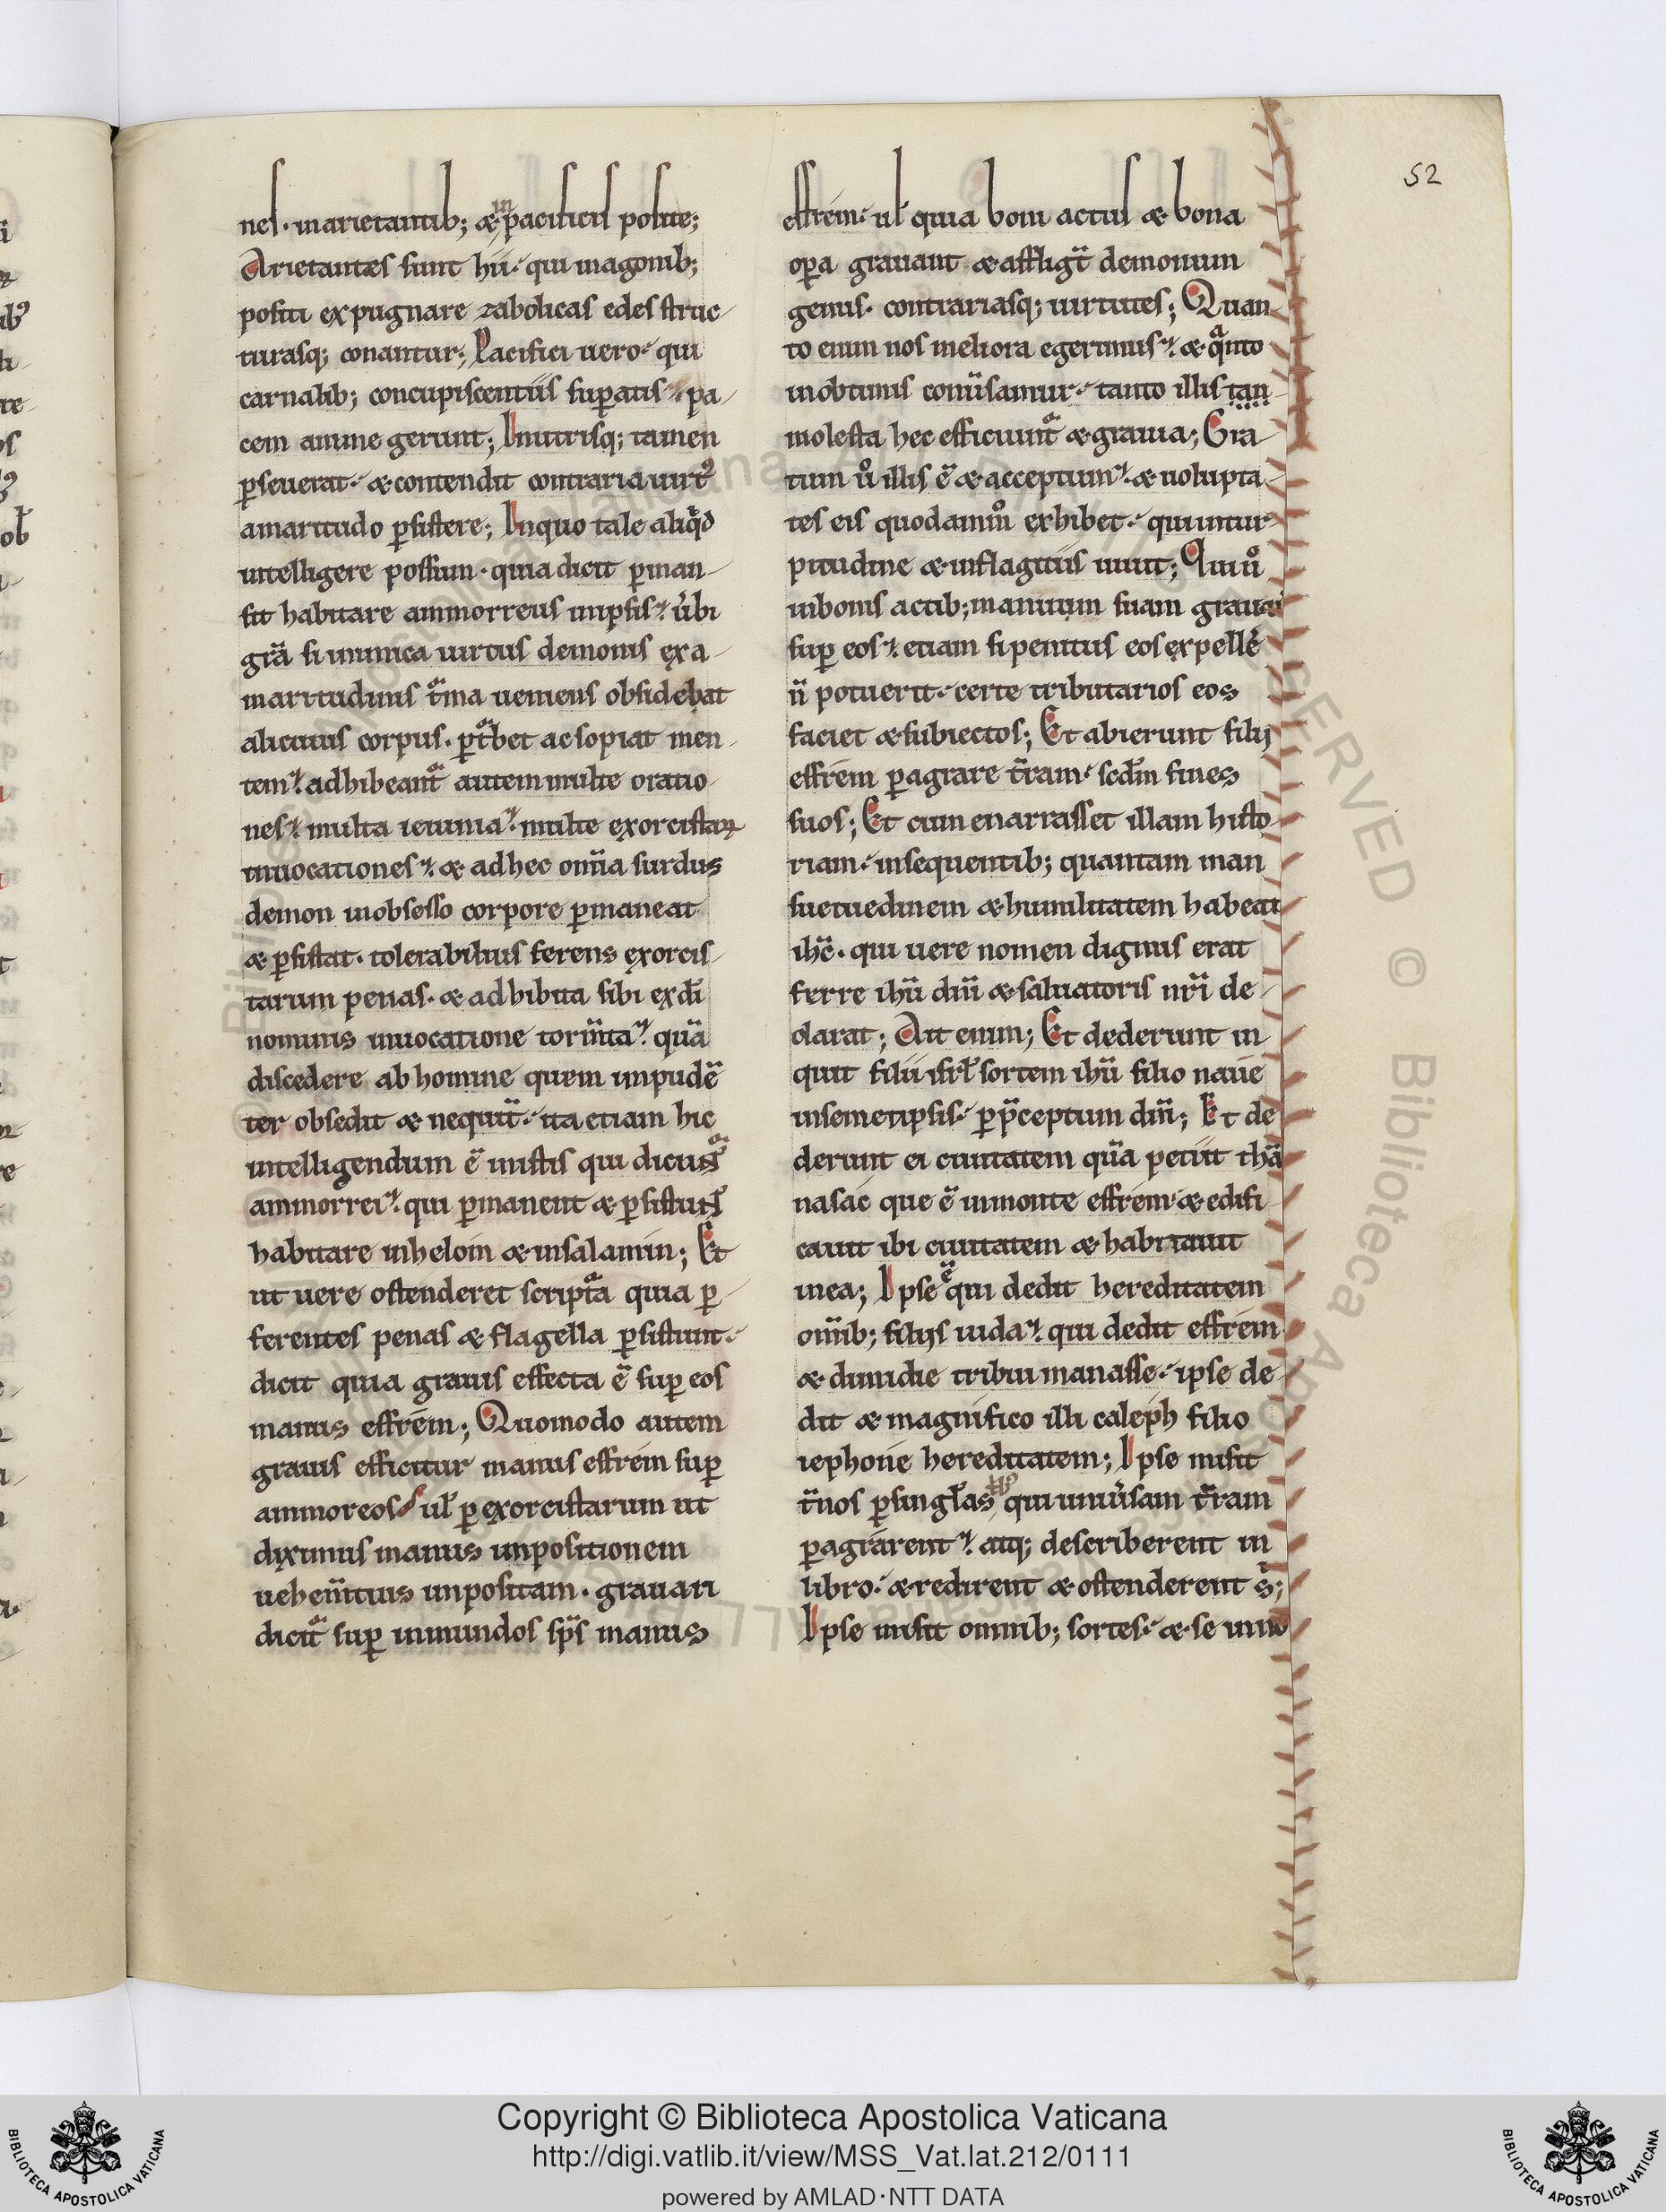 52
nes. inarietantib; & in pacificis posite;
Arietantes sunt hii. qui inagonib;
positi expugnare zabolicas edes struc
turasq; conantur; Pacifici uero. qui
carnalib; concupiscentiis sup̱atis. pa
cem anime gerunt; Inutrisq; tamen
p̱seuerat. & contendit contraria uirt᾽
amaritudo p̱sistere; Inquo tale aliqͥd
intelligere possum. quia dicit p̱man
sit habitare ammorreus inip̱sis. ubi
grā si inimica uirtus demonis ex a
maritudinis t̄ma ueniens obsidebat
alicuius corpus. p̱t̄bet ac sopiat men
tem. adhibeant̄ autem multe oratio
nes. multa ieiunia. multe exorcistaꝝ
inuocationes. & ad hec om̄ia surdus
demon inobsesso corpore p̱maneat
& p̱sistat. tolerabilius ferens exorcis
tarum penas. & adhibita sibi exdī
nominis inuocatione torm̄ta. quā
discedere ab homine quem impudē
ter obsedit & nequit̄. ita etiam hic
intelligendum ē inistis qui dicunt̄
ammorrei. qui p̱manent & p̱sistunt
habitare inheloin & insalamin; Et
ut uere ostenderet script̄a quia p̱
ferentes penas & flagella p̱sistunt.
dicit quia grauis effecta ē sup̱ eos
manus effrem; Quomodo autem
grauis efficitur manus effrem sup̱
ammoreos ul̄ p̱ exorcistarum ut
diximus manus inpositionem
uehem̄tius inpositam. grauari
dicit̄ sup̱ inmundos sp̄s manus
effrem. ul̄ quia boni actus & bona
op̱a grauant & affligt̄ demonum
genus. contrariasq; uirtutes; Quan
to enim nos meliora egerimus. & qͣnto
inobtimis conūsamur. tanto illis tan
molesta hec efficiunt̄ & grauia; Gra
tum uͦ illis ē & acceptum. & uolupta
tes eis quodammͦ exhibet. qui intur
pitudine & inflagitiis uiuit; Qui uͦ
inbonis actib; manuum suam grauat
sup̱ eos. etiam si penitus eos expellē
n̄ potuerit. certe tributarios eos
faciet & subiectos; Et abierunt filij
effrem p̱agrare t̄ram. scdm̄ fines
suos; Et cum enarrasset illam histo
riam. insequentib; quantam man
suetuedinem & humilitatem habeat
ihc̄. qui uere nomen dignus erat
ferre ihū dn̄i & saluatoris nr̄i de
clarat; Ait enim; Et dederunt in
quit filii isrl̄ sortem ihū filio naue
insemetipsis. p̱ p̄ceptum dn̄i; Et de
derunt ei ciuitatem quā petiit thā
nasac que ē inmonte effrem & edifi
cauit ibi ciuitatem & habitauit
inea; Ipse ē qui dedit hereditatem
om̄ib; filijs iuda. qui dedit effrem
& dimidie tribui manasse. ipse de
dit & magnifico illi caleph filio
iephone hereditatem; Ipse misit
t̄nos p̱singl̄as tb᾽ qui uniūsam t̄ram
p̱agrarent. atq; describerent in
libro. & redirent & ostenderent s̄;
Ipse misit omnib; sortes. & se
Copyright © Biblioteca Apostolica Vaticana
http://digi.vatlib.it/view/MSS_Vat.lat.212/0111
powered by AMLAD·NTT DATA
BIBLIOTECA APOSTOLICA VATICANA
BIBLIOTECA APOSTOLICA VATICANA